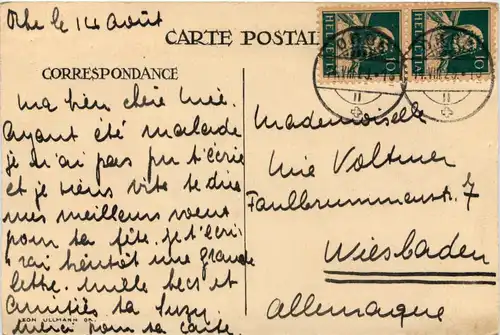 Orbe le 14 août
CARTE POSTAL
CORRESPONDANCE
HELVETIA 10
HELVETIA 10
Ma bien chère Mie.
Ayant été malade
je n'ai pas pu t'écrire
et je viens vite te dire
mes meilleurs voeux
pour ta fête. je t'écri-
rai bientôt une grande
lettre. mille becs et
amitiés ta Suzy.
merci pour ta carte.
LEON ULLMANN
Mademoiselle
Mie Voltmer
Faulbrunnenstr. 7
Wiesbaden
Allemagne